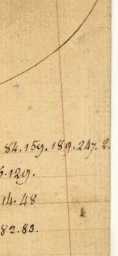 84. 159. 189. 247. 2.
5. 129.
14. 48
82. 83.